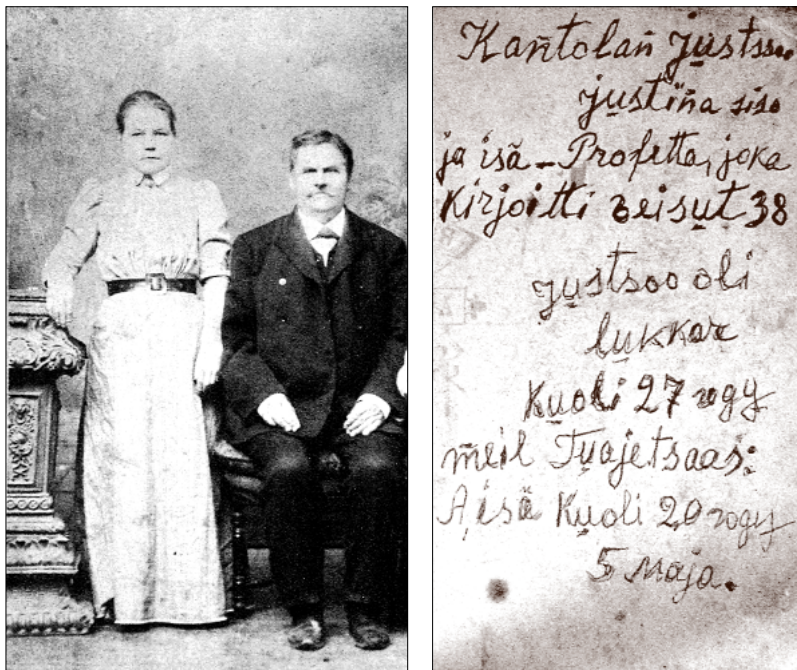 Kantolan Justsoo
justina siso
ja isä – Profetta, joka
Kirjoitti veisut 38
justsoo oli
lukkar
Kuoli 27 году
meil Tuajetsaas:
A isä Kuoli 20 году
5 маja.